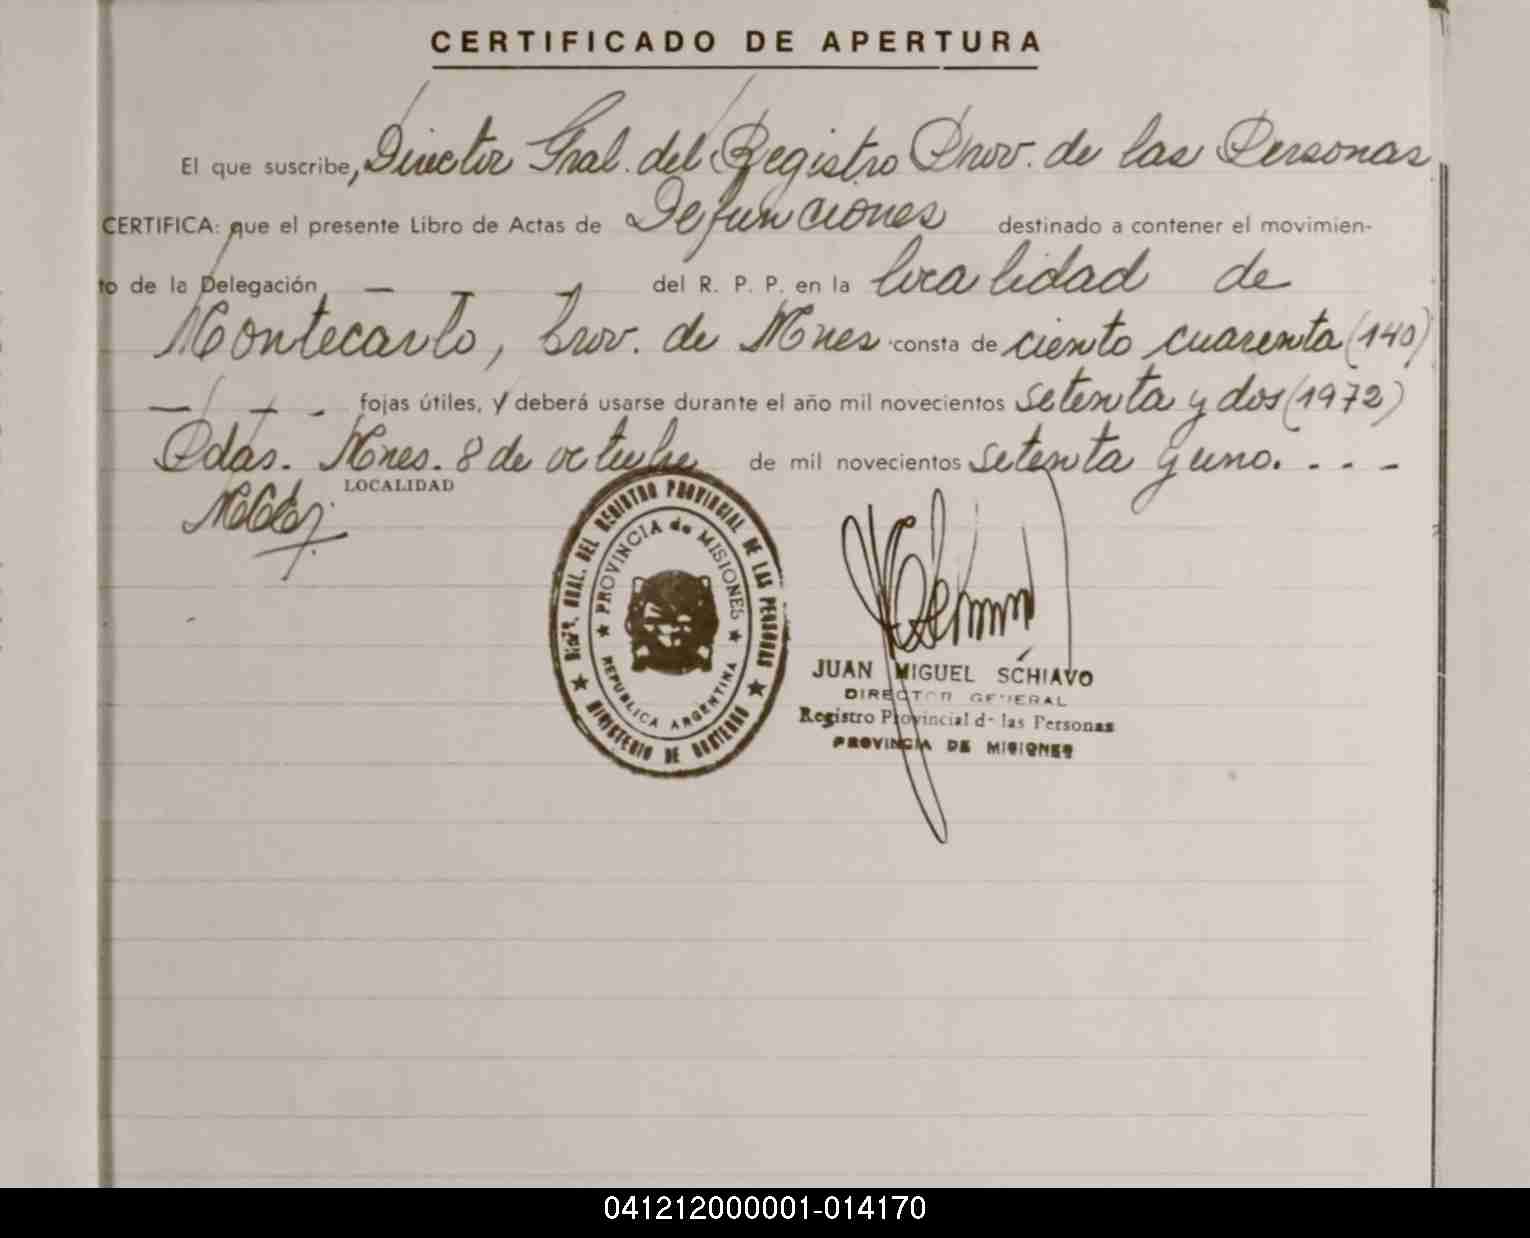 CERTIFICADO DE APERTURA
El que suscribe, Director Gral. del Registro Prov. de las Personas
CERTIFICA: que el presente Libro de Actas de Defunciones destinado a contener el movimien-
to de la Delegación — — — del R. P. P. en la localidad de
Montecarlo, Prov. de Mnes consta de ciento cuarenta (140)
— — - fojas útiles, y deberá usarse durante el año mil novecientos setenta y dos (1972)
Pdas. Mnes. 8 de octubre de mil novecientos setenta y uno. - - -
LOCALIDAD
DIREC. GRAL. DEL REGISTRO PROVINCIAL DE LAS PERSONAS
★ MINISTERIO DE GOBIERNO ★
★ PROVINCIA de MISIONES ★
REPUBLICA ARGENTINA
JUAN MIGUEL SCHIAVO
DIRECTOR GENERAL
Registro Provincial de las Personas
PROVINCIA DE MISIONES
041212000001-014170